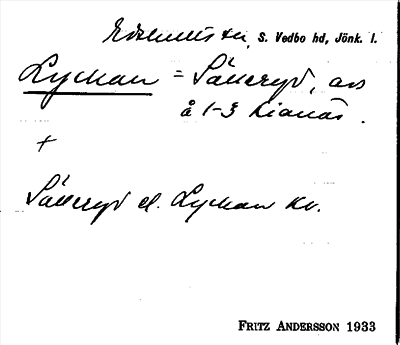 Edshults sn, S. Vedbo hd, Jönk. l.
Lyckan = Sälleryd, avs
å 1-3 Lianäs.
+
Sälleryd el. Lyckan kv.
FRITZ ANDERSSON 1933